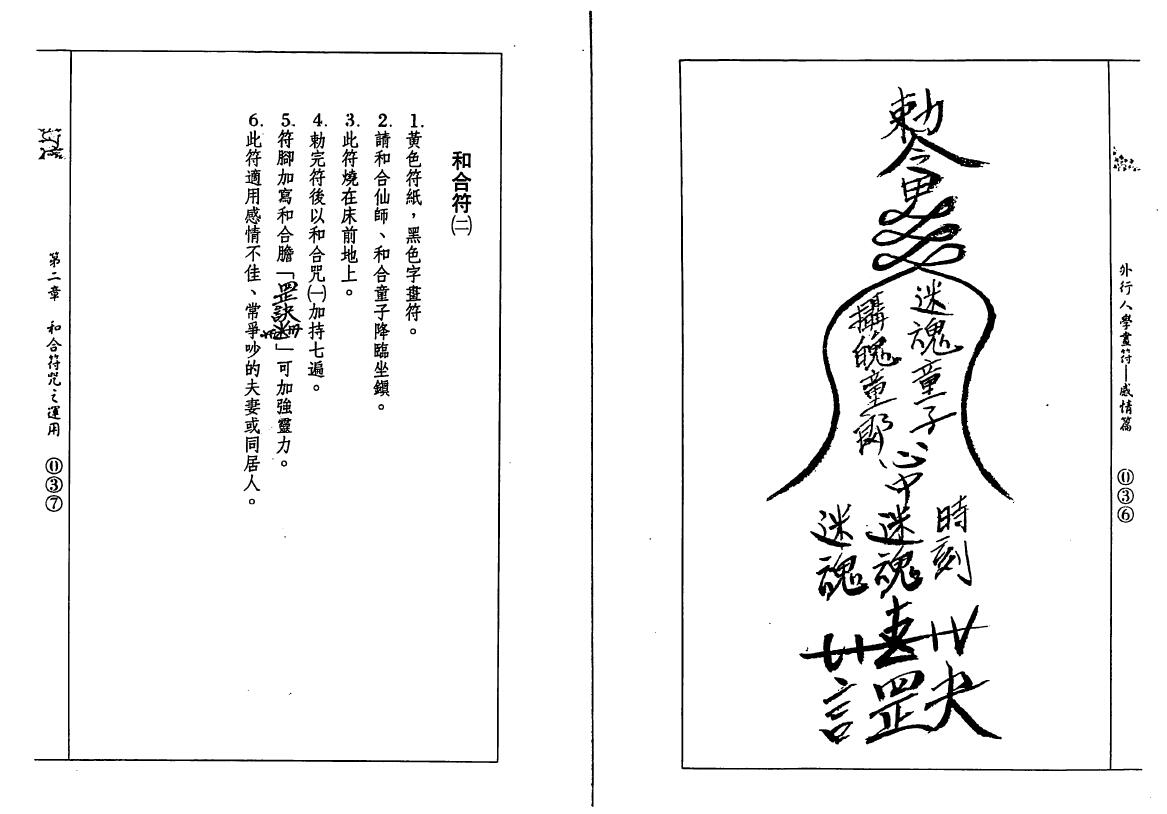 外行人學畫符—感情篇 ⓪③⑥
勅令
迷魂童子
攝魄童郎
心中
時刻
迷魂
迷魂
罡
和合符㈡
1.黃色符紙，黑色字畫符。
2.請和合仙師、和合童子降臨坐鎮。
3.此符燒在床前地上。
4.勅完符後以和合咒㈠加持七遍。
5.符腳加寫和合膽「罡訣」可加強靈力。
6.此符適用感情不佳、常爭吵的夫妻或同居人。
第二章　和合符咒之運用 ⓪③⑦